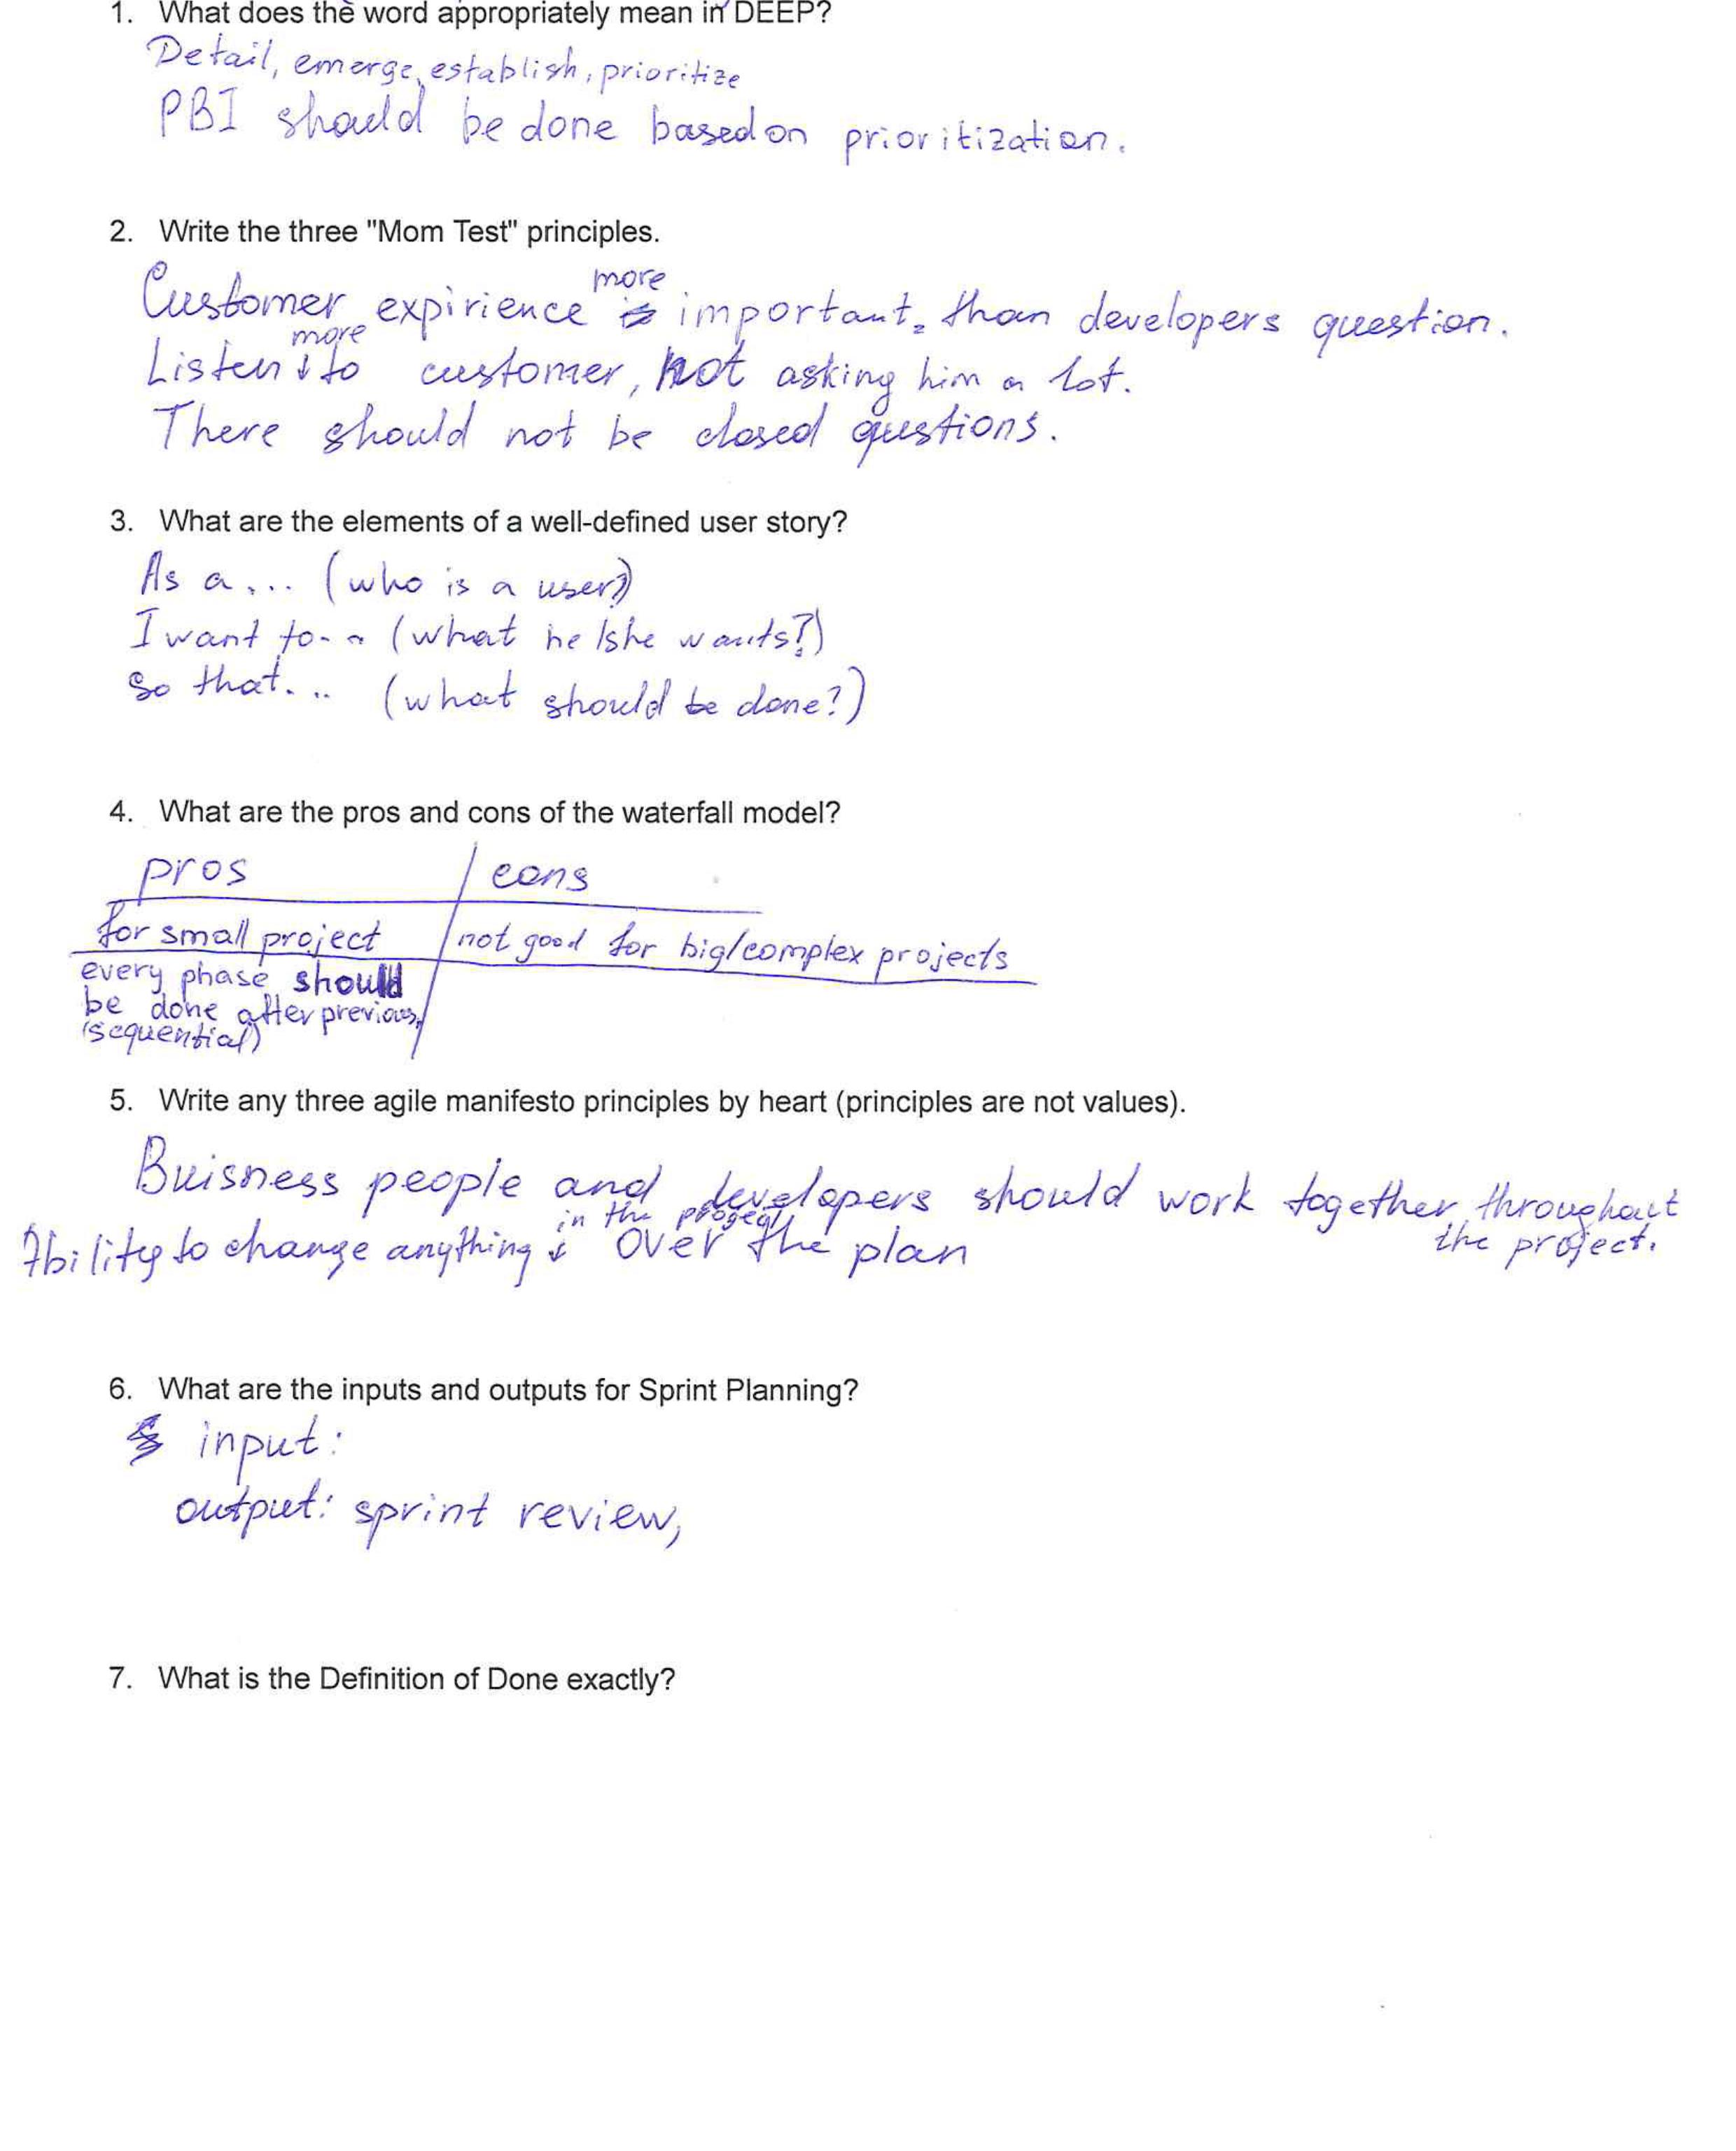 1. What does the word appropriately mean in DEEP?
Detail, emerge, establish, prioritize
PBI should be done based on prioritization.
2. Write the three "Mom Test" principles.
more
Customer expirience important, than developers question.
more
Listen to customer, not asking him a lot.
There should not be closed questions.
3. What are the elements of a well-defined user story?
As a... (who is a user?)
I want to.. (what he/she wants?)
So that... (what should be done?)
4. What are the pros and cons of the waterfall model?
pros cons
for small project not good for big/complex projects
every phase should
be done after previous,
(sequential)
5. Write any three agile manifesto principles by heart (principles are not values).
Buisness people and developers should work together throughout
the project.
in the progect
Ability to change anything over the plan
6. What are the inputs and outputs for Sprint Planning?
input:
output: sprint review,
7. What is the Definition of Done exactly?